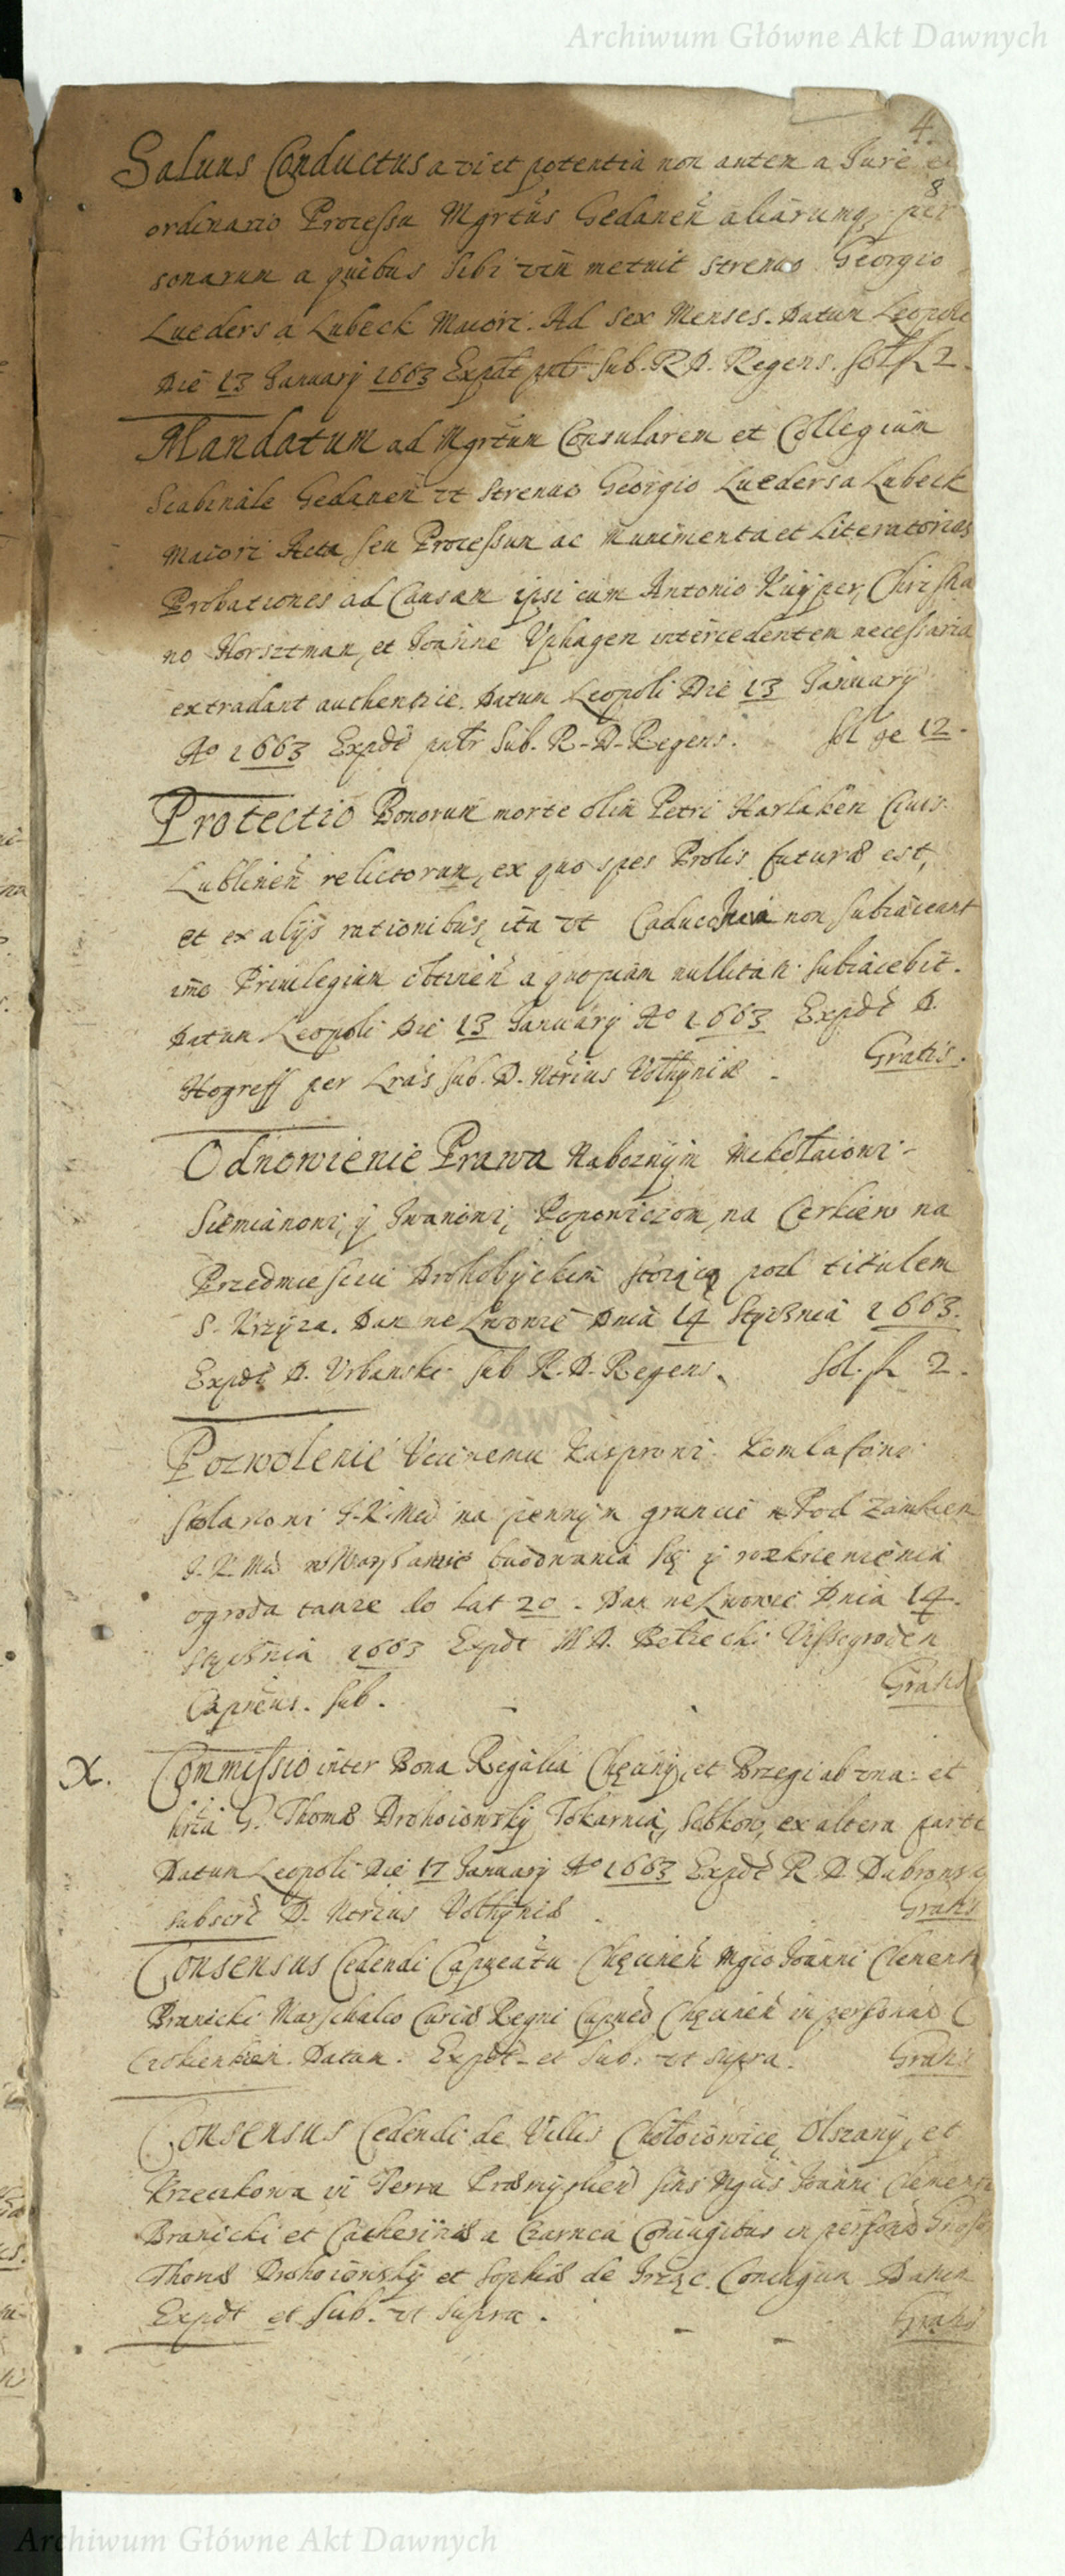 Archiwum Główne Akt Dawnych
4.
8
Saluus Conductus a vi et potentia non autem a Jure et
ordinario Processu Mgrtus Gedanen aliarumq per
sonarum a quibus sibi vim metuit strenuo Georgio
Lueders a Lubeck Maiori. Ad sex Menses. Datum Leopoli
Die 13 January 1663 Expdt pntr Sub. R. D. Regens. sol fl 2.
Mandatum ad Mgrtum Consularem et Collegium
Scabinale Gedanen vt strenuo Georgio Lueders a Lubeck
Maiori Acta seu Processum ac Munimenta et Literatorias
Probationes ad Causam ipsi cum Antonio Kuyper, Christia
no Horsztman, et Joanne Vphagen intercedentem necessaria
extradant authentice. Datum Leopoli Die 13 January
Ao 1663 Expdt pntr Sub. R. D. Regens. Sol ge 12.
Protectio Bonorum morte olim Petri Harlaken Ciuis
Lublinen relictorum, ex quo spes Prolis futuræ est,
et ex alijs rationibus, ita vt non subiaceant
imo Priuilegium obtinen a quopiam nullitati subiacebit.
Datum Leopoli Die 13 January Ao 1663 Expdt D.
Hogreff per Lras Sub. D. Ntrius Volhyniæ Gratis.
Odnowienie Prawa Naboznym Mikołaiowi
Siemianowi, y Iwanowi, Popowiczom, na Cerkiew na
Przedmiesciu Drohobyckim stoiącą pod titulem
S. Krzyza. Dan we Lwowie Dnia 14 Stycznia 1663.
Expdt D. Vrbanski Sub R. D. Regens. Sol. fl 2.
Pozwolenie Vcciwemu Kasprowi
Stolarowi J. K. Mci na pewnym gruncie Pod Zamkiem
J. K. Mci w Warszawie budowania się y rozkrzewienia
ogroda tamze do lat 20. Dan we Lwowie Dnia 14.
Stycznia 1663 Expdt M. D. Betzecki Vissegroden
Capneus. Sub. Gratis
X. Commissio inter Bona Regalia Chęciny, et Brzegi ab vna: et
hria G. Thomæ Drohoiowsky Tokarnia, Sobkow, ex altera parte
Datum Leopoli Die 17 January Ao 1663 Expdt R. D. Dabrowsky
subscrt D. Ntrius Volhyniæ Gratis
Consensus Cedendi Capneatu Chęcinen Mgco Joanni Clementi
Branicki Marschalco Curiæ Regni Capneo Chęcinen in personas
Datum. Expdt et Sub. vt supra. Gratis
Consensus Cedendi de Villis Chołoiowice, Olszany, et
Krzeczkowa in Terra Præmyslien sitis Mgcis Joanni Clementi
Branicki et Catherinæ a Czarnca Coniugibus in personas Gnsor
Thomæ Drohoiowsky et Sophiæ de Coniugum Datum
Expdt et Sub. vt supra. Gratis
Archiwum Główne Akt Dawnych